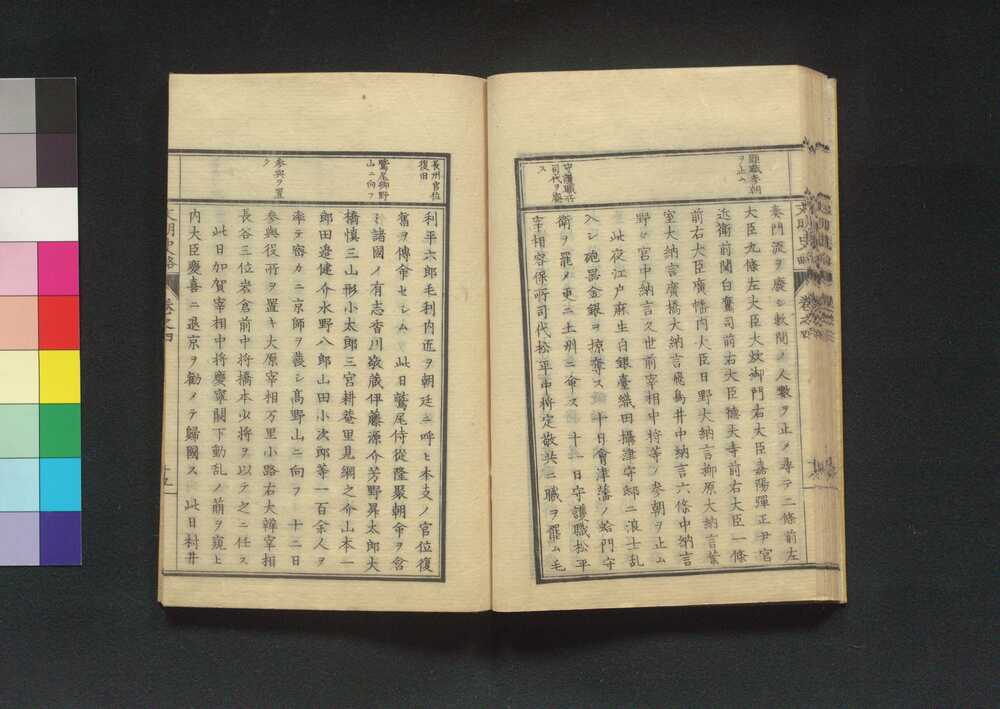 職參朝
ヲ止ム
守護職所
司代ヲ廢
ス
奏門流ヲ廢シ敕問ノ人數ヲ止メ尋テ二條前左
大臣九條左大臣大炊御門右大臣嘉陽彈正尹宮
近衛前關白鷹司前右大臣德大寺前右大臣一條
前右大臣廣幡內大臣日野大納言柳原大納言葉
室大納言廣橋大納言飛鳥井中納言六條中納言
野宮中納言久世前宰相中將等ノ參朝ヲ止ム
此夜江戶麻生白銀臺織田攝津守邸ニ浪士乱
入シ砲器金銀ヲ掠奪ス 十日會津藩ノ蛤門守
衛ヲ罷メ更ニ土州ニ命ス 十一日守護職松平
宰相容保所司代松平中將定敬共ニ職ヲ罷ム毛
長州官位
復旧
鷲尾卿野
山ニ向フ
參與ヲ置
ク
利平六郎毛利內匠ヲ朝廷ニ呼ヒ本支ノ官位復
舊ヲ傳命セシム 此日鷲尾侍從隆聚朝命ヲ含
ミ諸國ノ有志香川敬藏伊藤源介芳野昇太郎大
橋慎三山形小太郎三宮耕菴里見綱之介山本一
郎田邉健介水野八郎山田小次郎等一百余人ヲ
率テ密カニ京師ヲ發シ髙野山ニ向フ 十二日
參與役所ヲ置キ大原宰相万里小路右大辨宰相
長谷三位岩倉前中將橋本少將ヲ以テ之ニ任ス
此日加賀宰相中將慶寧闕下動乱ノ萠ヲ窺ヒ
內大臣慶喜ニ退京ヲ勸メテ歸國ス 此日村井
文明史略
卷之四
十五